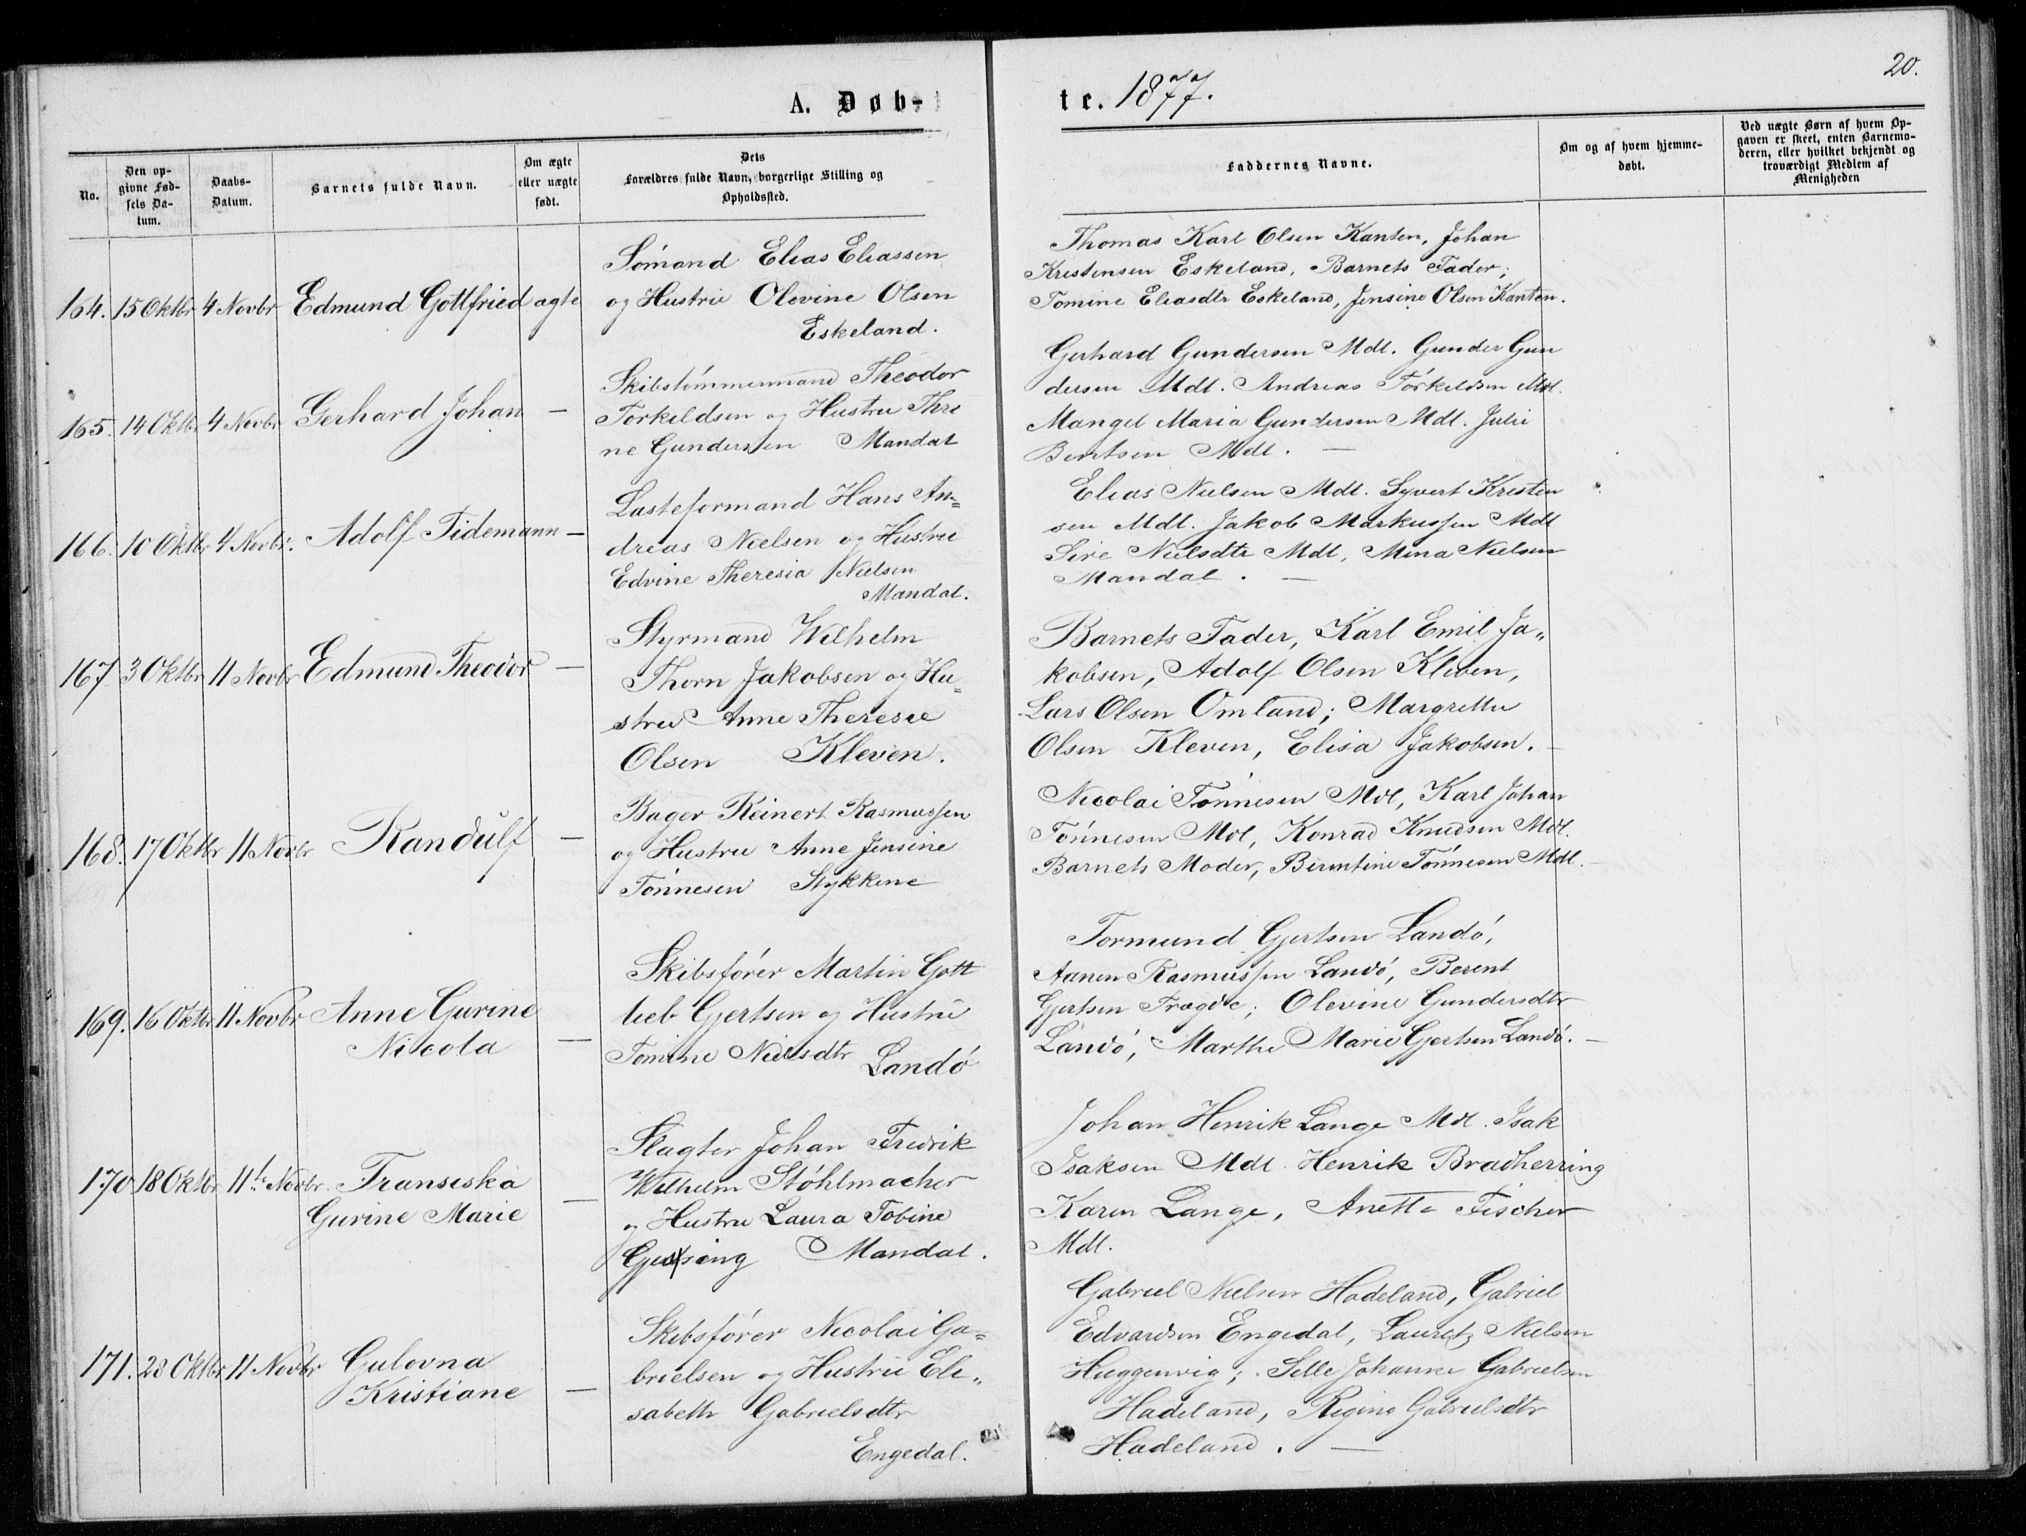 20.
A. Døb-
te. 1877.
No.
Den op-
givne Fød-
sels Da-
tum.
Daabs-
Datum.
Barnets fulde Navn.
Om ægte
eller uægte
født.
Dets
Forældres fulde Navn, borgerlige Stilling og
Opholdssted.
Faddernes Navne.
Om og af hvem hjemme-
døbt.
Ved uægte Børn af hvem Op-
gaven er skeet, enten Barnemo-
deren, eller hvilket bekjendt og
troværdigt Medlem af
Menigheden
164. 15 Oktbr 4 Novbr Edmund Gottfried ægte
Sømand Elias Eliassen
og Hustru Olevine Olsen
Eskeland.
Thomas Karl Olsen Kanten, Johan
Kristensen Eskeland, Barnets Fader;
Tomine Eliasdtr Eskeland, Jensine Olsen Kanten.
165. 14 Oktbr 4 Novbr Gerhard Johan —
Skibstømmermand Theodor
Torkeldsen og Hustru Thri
ne Gundersen Mandal
Gerhard Gundersen Mdl. Gunder Gun
dersen Mdl. Andreas Torkeldsen Mdl.
Mangel Maria Gundersen Mdl. Julie
Bentsen Mdl. —
166. 10 Oktbr 4 Novbr. Adolf Tidemann —
Lasteformand Hans An=
dreas Nielsen og Hustru
Edvine Theresia Nielsen
Mandal.
Elias Nielsen Mdl. Syvert Kristen
sen Mdl. Jakob Markussen Mdl
Sire Nielsdtr Mdl, Mina Nielsen
Mandal. —
167 3 Oktbr 11 Novbr Edmund Theodor —
Styrmand Wilhelm
Thorn Jakobsen og Hu=
stru Anne Therese
Olsen Kleven.
Barnets Fader, Karl Emil Ja„
kobsen, Adolf Olsen Kleven,
Lars Olsen Omland; Margrethe
Olsen Kleven, Elisa Jakobsen. —
168. 17 Oktbr 11 Novbr Randulf —
Bager Reinert Rasmussen
og Hustru Anne Jensine
Tønnesen Stykkene
Nicolai Tønnesen Mdl, Karl Johan
Tønnesen Mdl, Konrad Knudsen Mdl.
Barnets Moder, Birentine Tønnesen Mdl. —
169. 16 Oktbr 11 Novbr Anne Gurine
Nicola —
Skibsfører Martin Gott
lieb Gjertsen og Hustru
Tomine Nielsdtr Landø
Tormund Gjertsen Landø,
Aanen Rasmussen Landø, Berent
Gjertsen Tregde; Olevine Gundersdtr
Landø, Marthe Marie Gjertsen Landø. —
170 18 Oktbr 11te Novbr. Fransiska
Gurine Marie —
Slagter Johan Fredrik
Wilhelm Støhlmacher
og Hustru Laura Tobine
Mandal.
Johan Henrik Lange Mdl. Isak
Isaksen Mdl. Henrik Bradherring
Karen Lange, Anette Fischer
Mdl.
171. 28 Oktbr 11 Novbr Gulovna
Kristiane —
Skibsfører Nicolai Ga=
brielsen og Hustru Eli„
sabeth Gabrielsdtr
Engedal.
Gabriel Nielsen Hadeland, Gabriel
Edvardsen Engedal, Lauretz Nielsen
Huggenvig; Selle Johanne Gabrielsen
Hadeland, Regine Gabrielsdtr
Hadeland. —